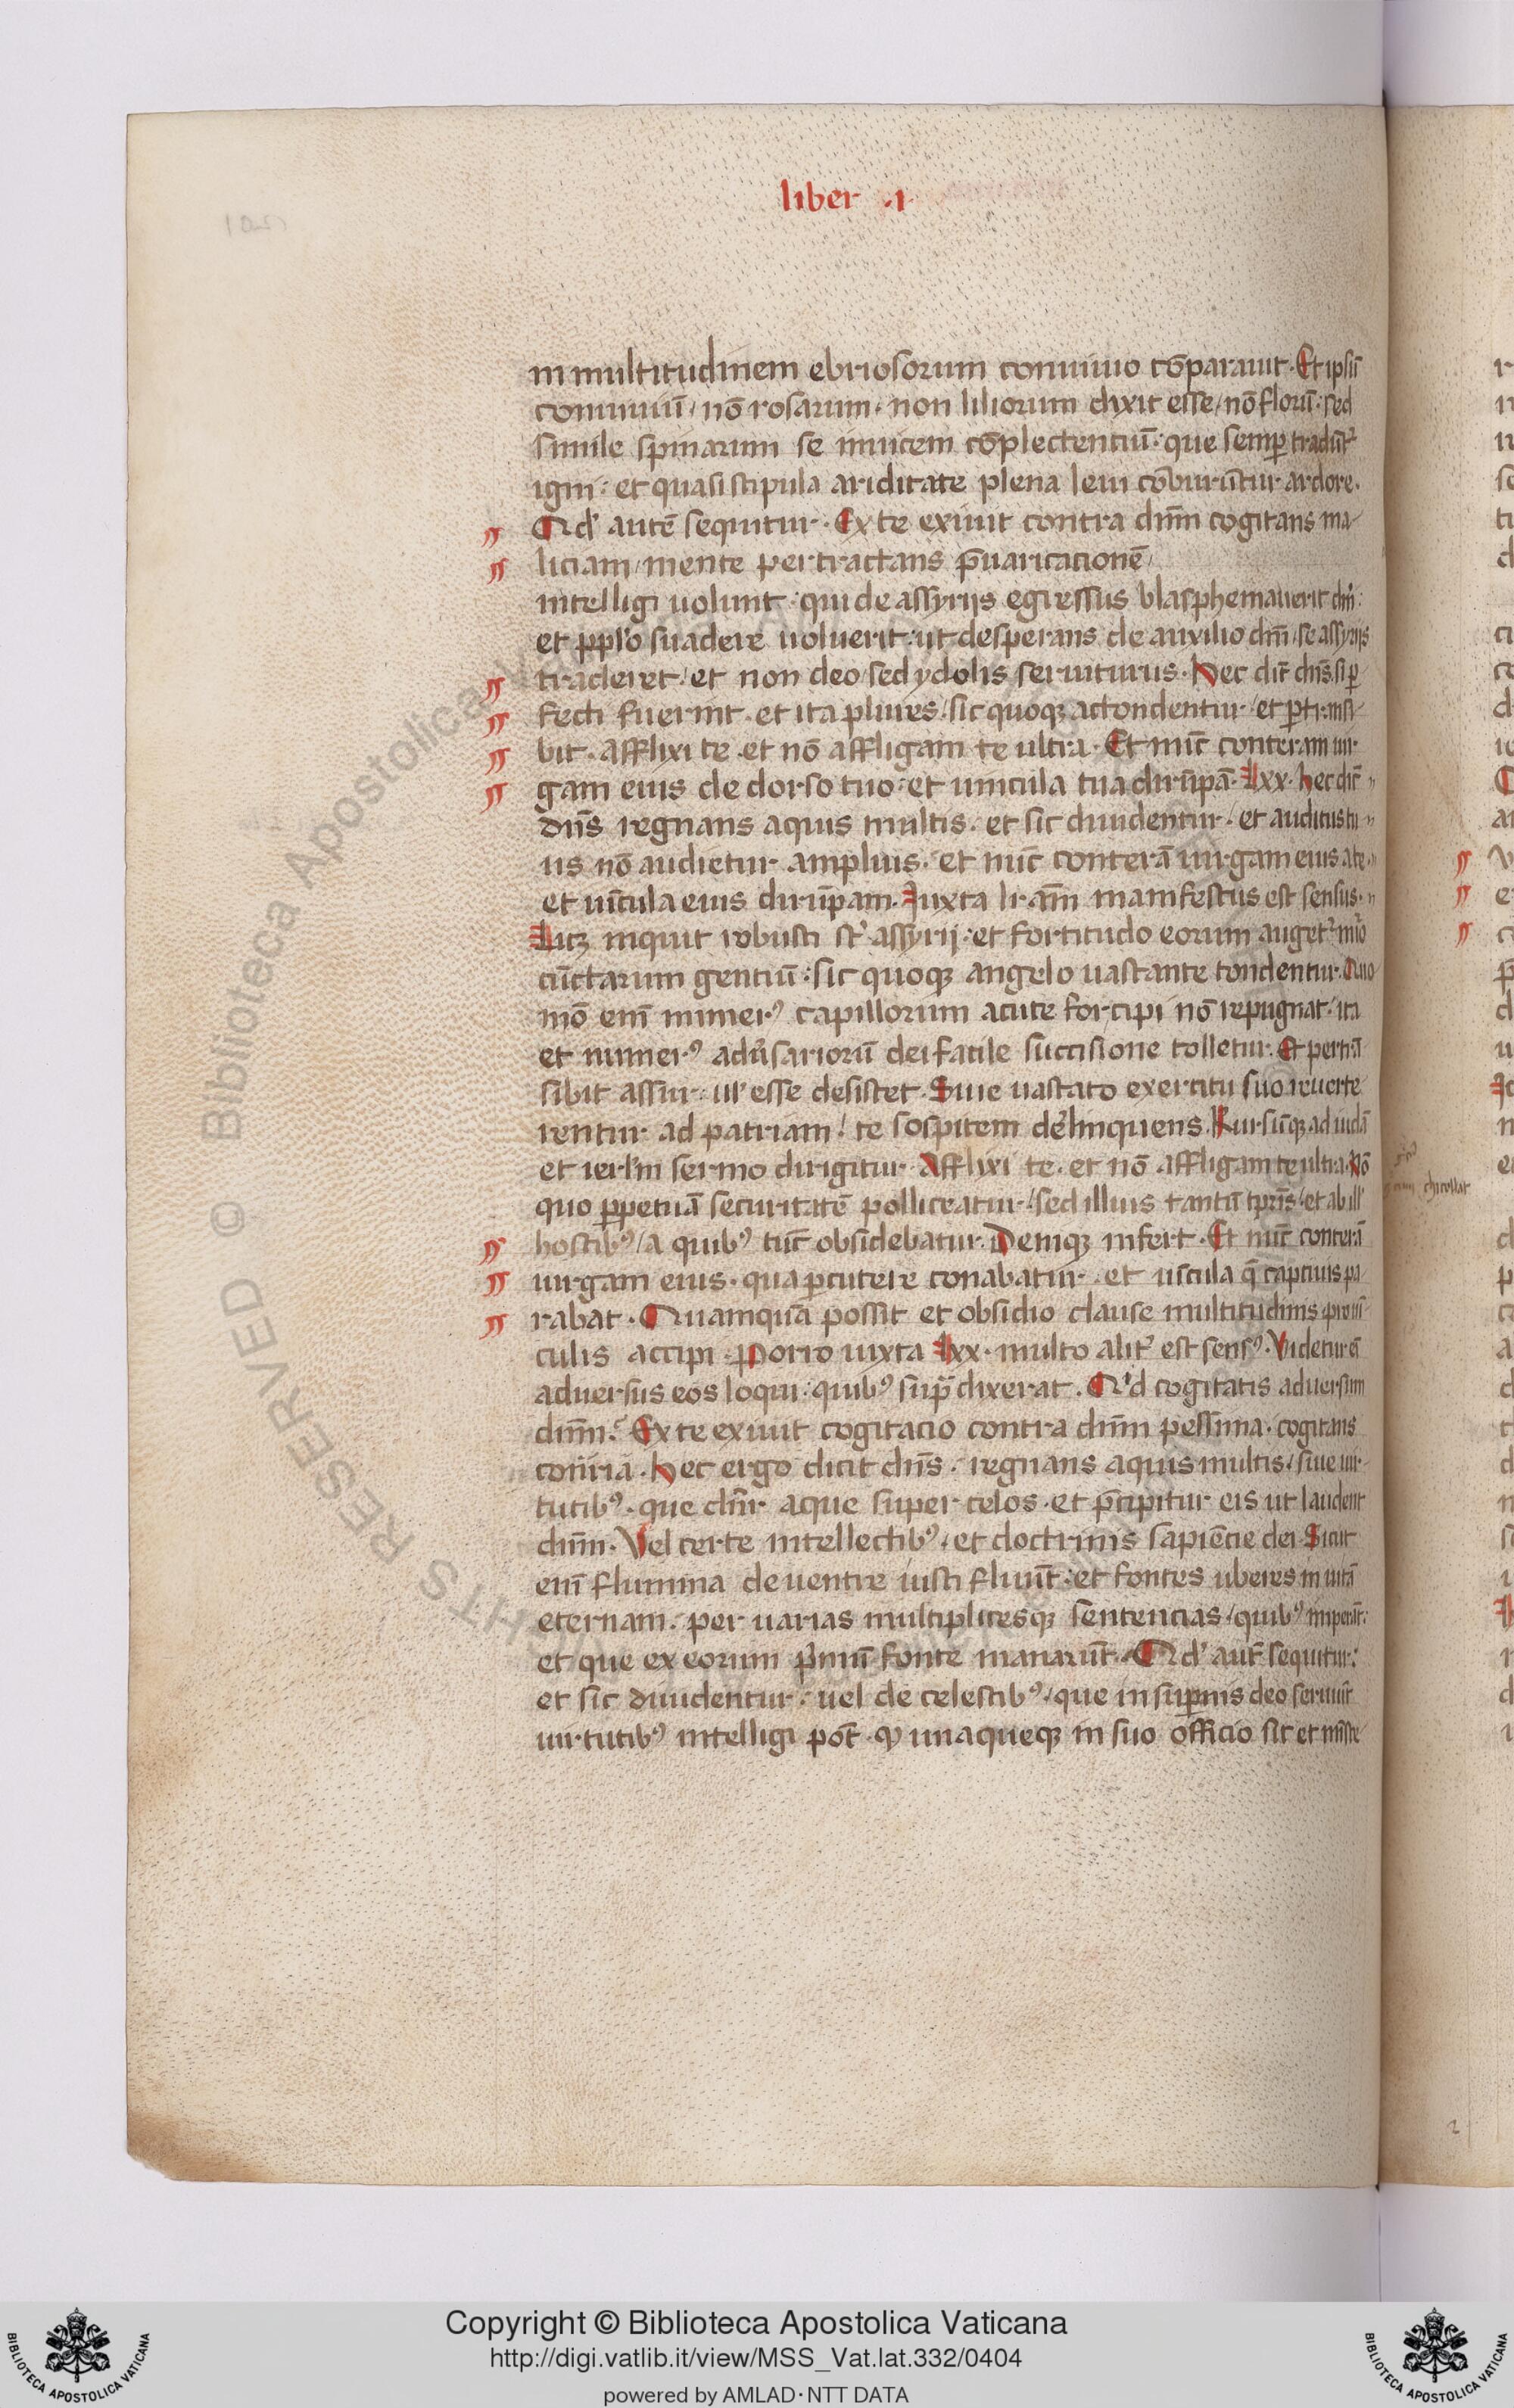 liber .1.
in multitudinem ebriosorum conuiuio cōparauit. Et ipsū
conuiuiū/ nō rosarum/ non liliorum dixit esse/ nō florū: sed
simile spinarum se inuicem cōplectentiū: que semp tradūt᷑
igni: et quasi stipula ariditate plena leui cōburūtur ardore.
Qd' autē sequitur. Ex te exiuit contra dnm̄ cogitans ma-
liciam/ mente pertractans p̄uaricationē/
intelligi uolunt: qui de assyrijs egressus blasphemauerit dnm̄:
et ppl'o suadere uoluerit: ut desperans de auxilio dnī/ se assyrijs
traderet/ et non deo/ sed ydolis seruiturus. Hec dic̄ dns̄. si p
fecti fuerint. et ita plures/ sic quoqꝫ attondentur/ et p̱transi-
bit. afflixi te. et nō affligam te ultra. Et nūc conteram uir-
gam eius de dorso tuo: et uincula tua dirūpā. Lxx. hec dic̄
dns̄ regnans aquis multis. et sic diuidentur. et auditus tu-
us nō audietur amplius. et nūc conterā uirgam eius a te.
et uīcula eius dirūpam. Iuxta lr̄am manifestus est sensus.
Licꝫ inquit robusti st᷑ assyrij: et fortitudo eorum auget᷑ nūo
cūctarum gentiū: sic quoqꝫ angelo uastante tondentur. Quo
mō enī numerꝰ capillorum acute forcipi nō repugnat: ita
et numerꝰ adu᷑sariorū dei facile succisione tolletur. Et pertrā
sibit assur. ul' esse desistet. Siue uastato exercitu suo reuerte
rentur ad patriam: te sospitem derelinquens. Rursūqꝫ ad iudā
et ierl'm sermo dirigitur. Afflixi te. et nō affligam te ultra. Nō
quo p̱petuā securitatē polliceatur/ sed illius tantū tpr̄is/ et ab ill'
hostibꝰ/ a quibꝰ tūc obsidebatur. Deniqꝫ infert. Et nūc conterā
uirgam eius. qua p̱cutere conabatur. et uīcula q̄ captiuis pa
rabat. Quamquā possit et obsidio clause multitudinis pro uī
culis accipi. Porro iuxta Lxx. multo alit᷑ est sensꝰ. Videtur eī
aduersus eos loqui: quibꝰ supᵃ dixerat. Qⁱd cogitatis aduersum
dnm̄? Ex te exiuit cogitacio contra dnm̄ pessima. cogitans
cōtrʳia. Hec ergo dicit dns̄. regnans aquis multis/ siue uir-
tutibꝰ. que dn̄r aque super celos. et p̄cipitur eis ut laudent
dnm̄. Vel certe intellectibꝰ/ et doctrinis sapiēcie dei. Sicut
enī flumina de uentre iusti fluūt: et fontes uberes in uitā
eternam. per uarias multiplicesqꝫ sentencias/ quibꝰ imperat:
et que ex eorum p̱mū fonte manarūt. Qd' aut̄ sequitur:
et sic diuidentur: uel de celestibꝰ/ que in sup̱nis deo seruiūt
uirtutibꝰ intelligi pot̄. ꝙ unaqueqꝫ in suo officio sit et misste
Copyright © Biblioteca Apostolica Vaticana
http://digi.vatlib.it/view/MSS_Vat.lat.332/0404
powered by AMLAD·NTT DATA